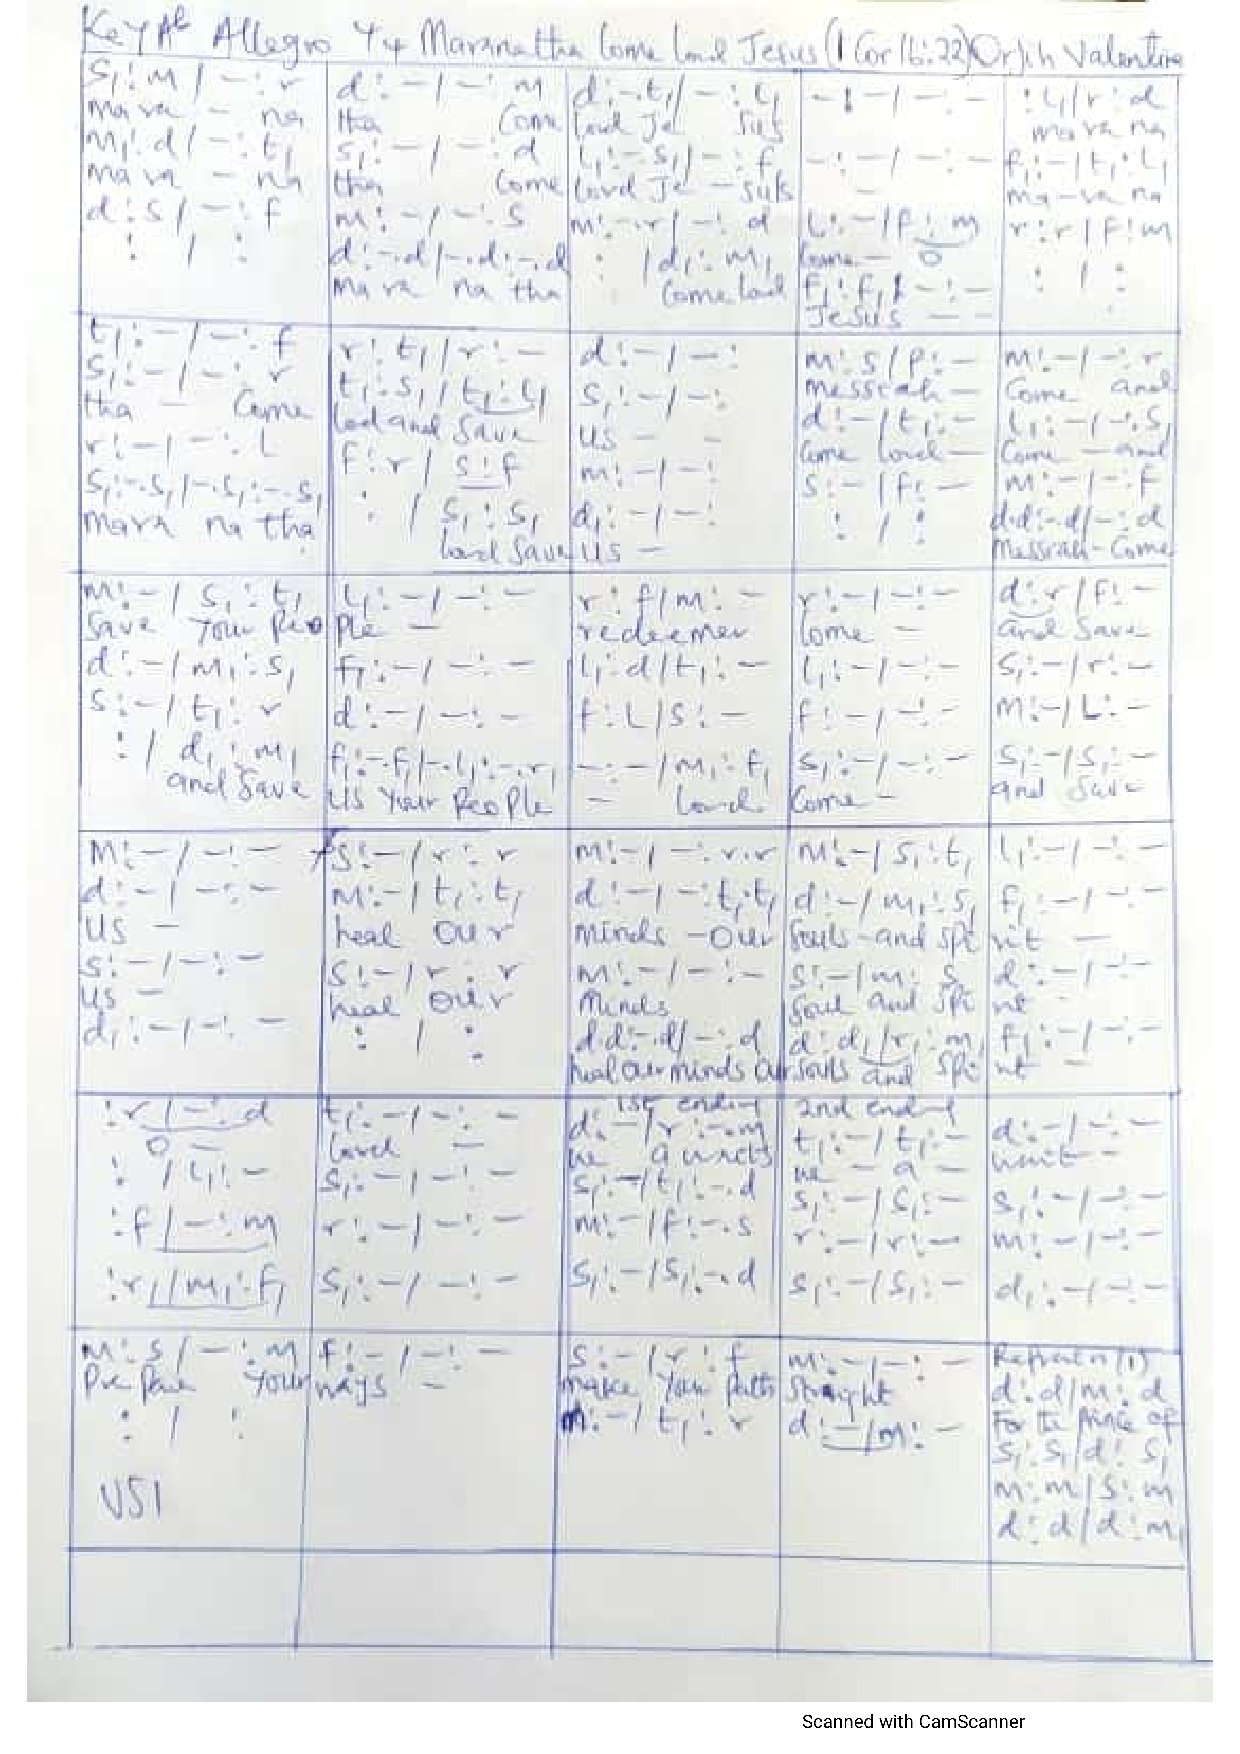 Key Ab Allegro 4/4 Maranatha Come Lord Jesus (1 Cor 16:22) Orjih Valentine
s₁:m/-:r
mara - na
m₁:d/-:t₁
mara - na
d:s/-:f
: / :
d:-/-:m
tha Come
s₁:-/-:d
tha Come
m:-/-:s
d:-.d/-.d:-.d
mara na tha
d:-.t₁/-:l₁
lord Je sus
l₁:-.s₁/-:f₁
lord Je - sus
m:-.r/-:d
: /d₁:m₁
Come lord
-:-/-:-
-:-/-:-
-
l:-/f:m
Come - O
f₁:f₁/-:-
Jesus - -
:l₁/r:d
mara na
f₁:-/t₁:l₁
ma-ra na
r:r/f:m
: / :
t₁:-/-:f
s₁:-/-:r
tha - Come
r:-/-:l
s₁:-.s₁/-.s₁:-.s₁
mara na tha
r:t₁/r:-
t₁:s₁/t₁:l₁
lord and save
f:r/s:f
: /s₁:s₁
lord save
d:-/-:
s₁:-/-:
us - -
m:-/-:
d₁:-/-:
us -
m:s/f:-
messiah -
d:-/t₁:-
Come lord -
s:-/f:-
: / :
m:-/-:r
Come and
l₁:-/-:s₁
Come - and
m:-/-:f
d.d:-.d/-:d
Messiah - Come
m:-/s₁:t₁
Save Your Peo
d:-/m₁:s₁
s:-/t₁:r
: /d₁:m₁
and save
l₁:-/-:-
ple -
f₁:-/-:-
d:-/-:-
f₁:-.f₁/-.l₁:-.r₁
us Your People
r:f/m:-
redeemer
l₁:d/t₁:-
f:l/s:-
-:-/m₁:f₁
- lord
r:-/-:-
Come -
l₁:-/-:-
f:-/-:-
s₁:-/-:-
Come -
d:r/f:-
and save
s₁:-/r:-
m:-/l:-
s₁:-/s₁:-
and save
m:-/-:-
d:-/-:-
us -
s:-/-:-
us -
d₁:-/-:-
s:-/r:r
m:-/t₁:t₁
heal our
s:-/r:r
heal our
: / :
m:-/-:r.r
d:-/-:t₁.t₁
minds - our
m:-/-:-
minds
d.d:-.d/-:d
heal our minds our
m:-/s₁:t₁
d:-/m₁:s₁
souls - and spi
s:-/m:s
soul and spi
d:d₁/r₁:m₁
souls and spi
l₁:-/-:-
f₁:-/-:-
rit -
d:-/-:-
rit -
f₁:-/-:-
rit -
:r/-:d
O -
: /l₁:-
:f/-:m
:r₁/m₁:f₁
t₁:-/-:-
lord -
s₁:-/-:-
r:-/-:-
s₁:-/-:-
1st ending
d:-/r:-.m
we
s₁:-/t₁:-.d
m:-/f:-.s
s₁:-/s₁:-.d
2nd ending
t₁:-/t₁:-
we - a -
s₁:-/s₁:-
r:-/r:-
s₁:-/s₁:-
d:-/-:-
wait -
s₁:-/-:-
m:-/-:-
d₁:-/-:-
m:s/-:m
Prepare Your
: / :
VS1
f:-/-:-
ways -
s:-/r:f
make Your path
m:-/t₁:r
m:-/-:-
straight
d:-/m:-
Refrain (1)
d:d/m:d
For the prince of
s₁:s₁/d:s₁
m:m/s:m
d:d/d:m₁
Scanned with CamScanner